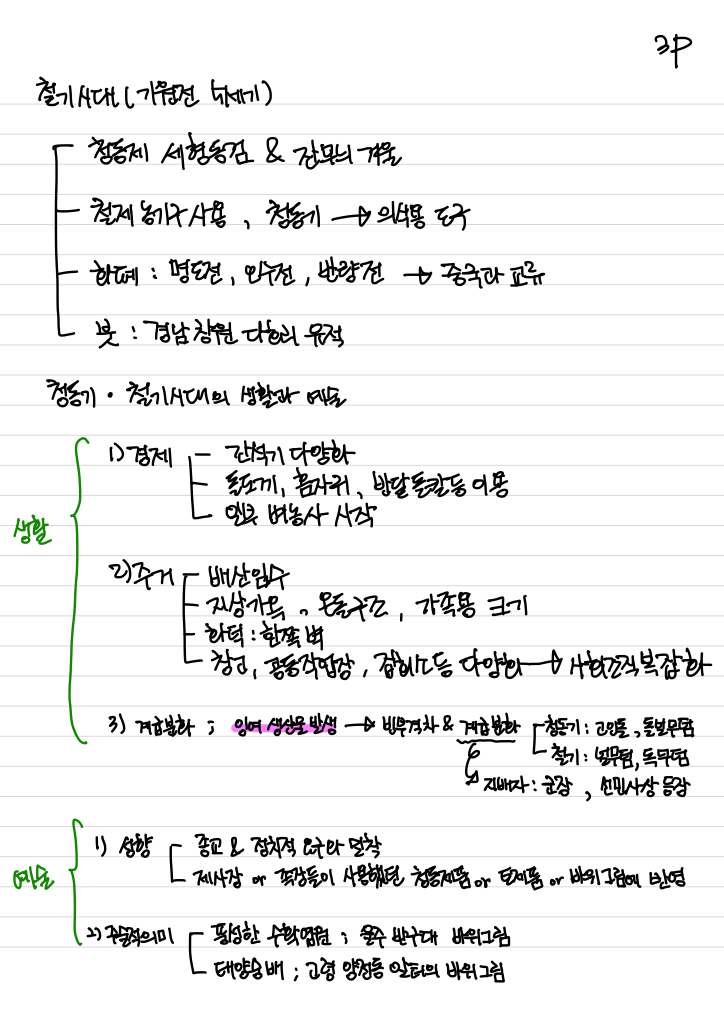 3P
철기시대 (기원전 5세기)
청동제 세형동검 & 잔무늬 거울
철제농기구 사용 , 청동기 → 의식용 도구
화폐 : 명도전 , 오수전 , 반량전 → 중국과 교류
붓 : 경남 창원 다호리 유적
청동기 · 철기시대의 생활과 예술
생활
1) 경제 - 간석기 다양화
돌도끼, 홈자귀, 반달돌칼등 이용
일부 벼농사 시작
2) 주거 배산임수
지상가옥 , 온돌구조 , 가족용 크기
화덕 : 한쪽 벽
창고, 공동작업장, 집회소등 다양화 → 사회조직 복잡화
3) 계급분화 ; 잉여 생산물 발생 → 빈부격차 & 계급분화 청동기 : 고인돌, 돌널무덤
철기 : 널무덤, 독무덤
지배자 : 군장 , 선민사상 등장
예술
1) 성향 종교 & 정치적 요구와 밀착
제사장 or 족장들이 사용했던 청동제품 or 토제품 or 바위그림에 반영
2) 주술적의미 풍성한 수확염원 ; 울주 반구대 바위그림
태양숭배 ; 고령 양전동 알터의 바위그림